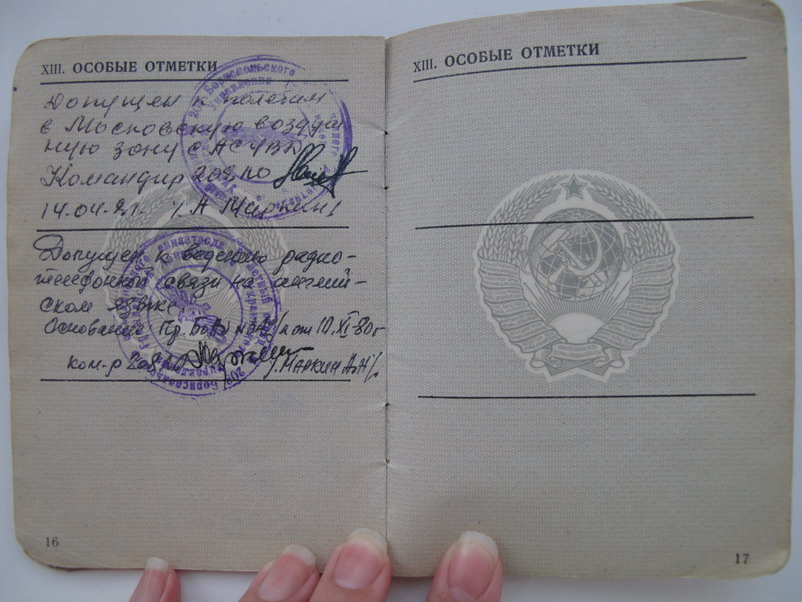 XIII. ОСОБЫЕ ОТМЕТКИ
Допущен к полетам
в Московскую воздуш
ную зону с АСУВД
Командир 208 ЛО
14.04.81. /А Маркин/
Допущен к ведению радио-
телефонной связи на англий-
ском языке.
Основание Пр. от 10.XI-80г
ком-р /Маркин А.Н/
208 Бориспольского
управления
16
XIII. ОСОБЫЕ ОТМЕТКИ
17